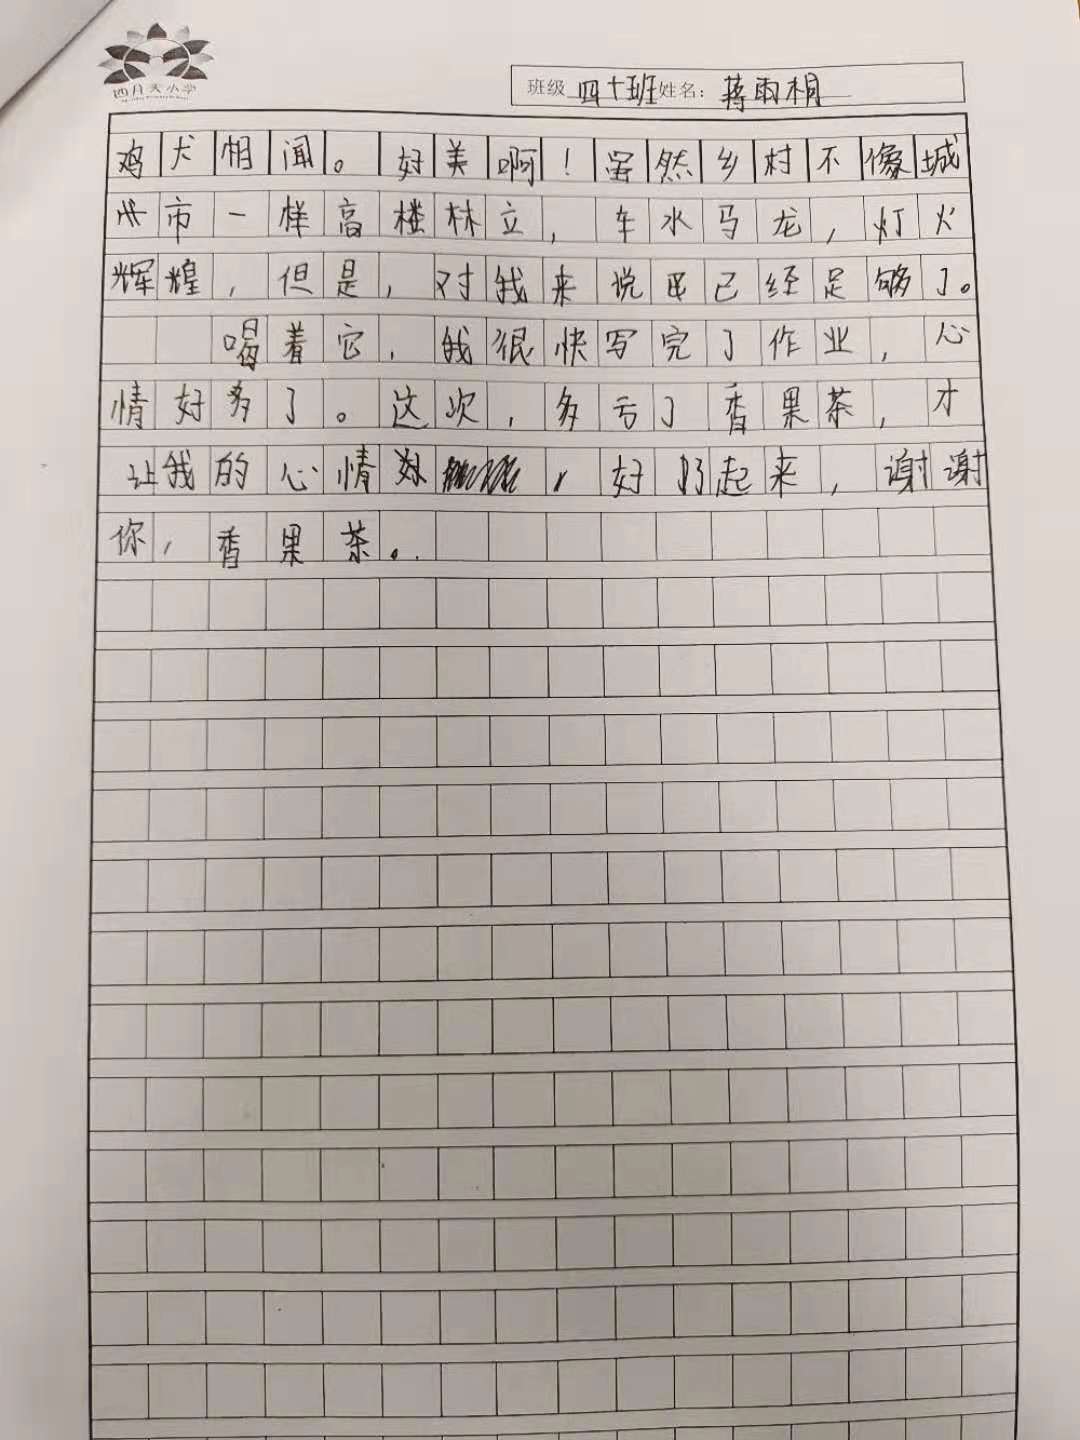 四月天小学
班级 四十班 姓名：蒋雨桐
鸡犬相闻。好美啊！虽然乡村不像城
市一样高楼林立，车水马龙，灯火
辉煌，但是，对我来说已经足够了。
喝着它，我很快写完了作业，心
情好多了。这次，多亏了香果茶，才
让我的心情，好好起来，谢谢
你，香果茶。